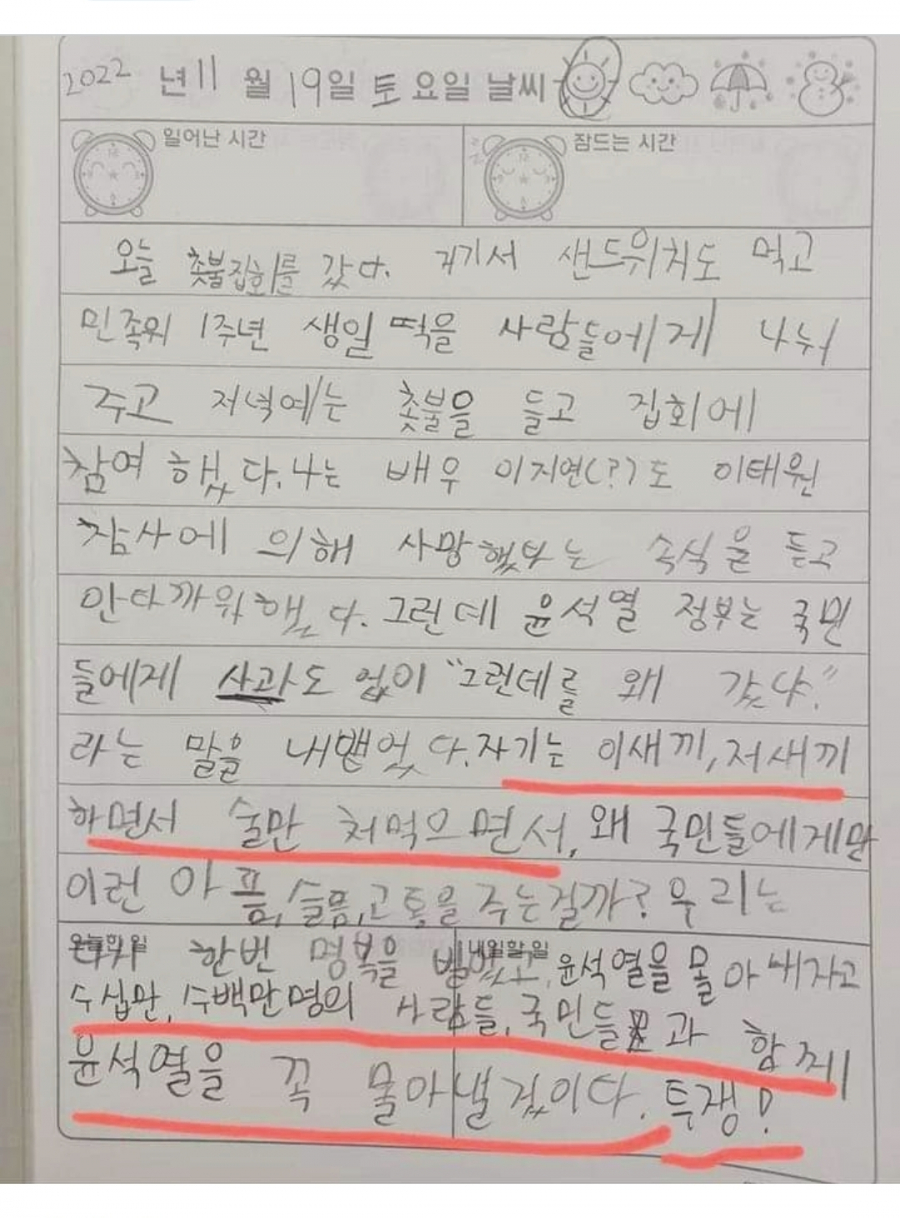 2022 년 11 월 19일 토 요일 날씨
일어난 시간 잠드는 시간
오늘 촛불집회를 갔다. 거기서 샌드위치도 먹고
민족위 1주년 생일 떡을 사람들에게 나눠
주고 저녁에는 촛불을 들고 집회에
참여 했다. 나는 배우 이지연(?)도 이태원
참사에 의해 사망했다는 속식을 듣고
안타까워했다. 그런데 윤석열 정부는 국민
들에게 사과도 없이 "그런데를 왜 갔냐."
라는 말을 내뱉었다. 자기는 이새끼, 저새끼
하면서 술만 처먹으면서, 왜 국민들에게만
이런 아픔, 슬픔, 고통을 주는걸까? 우리는
오늘한 일 내일할 일
한번 명복을 빌었고, 윤석열을 몰아내자고
수십만, 수백만명의 사람들, 국민들과 함께
윤석열을 꼭 몰아낼 것이다. 투쟁!